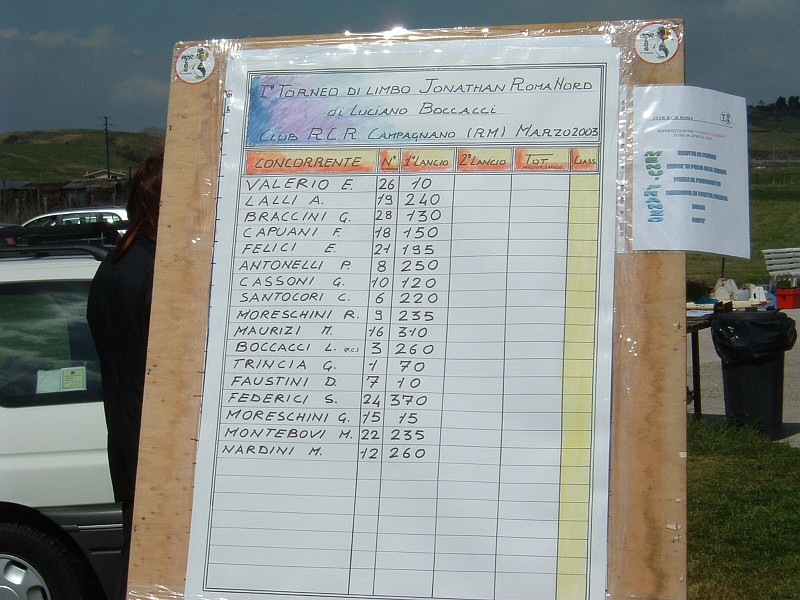 I° TORNEO DI LIMBO JONATHAN ROMA NORD
di LUCIANO BOCCACCI
CLUB R.C.R. CAMPAGNANO (RM) MARZO 2003
CONCORRENTE N° 1° LANCIO 2° LANCIO TOT. CLASS.
VALERIO E. 26 10
LALLI A. 19 240
BRACCINI G. 28 130
CAPUANI F. 18 150
FELICI E. 21 195
ANTONELLI P. 8 250
CASSONI G. 10 120
SANTOCORI C. 6 220
MORESCHINI R. 9 235
MAURIZI M. 16 310
BOCCACCI L. (F.C.) 3 260
TRINCIA G. 1 70
FAUSTINI D. 7 10
FEDERICI S. 24 370
MORESCHINI G. 15 15
MONTEBOVI M. 22 235
NARDINI M. 12 260
CLUB R.C.R. ROMA